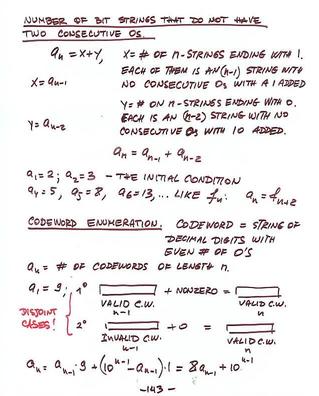 NUMBER OF BIT STRINGS THAT DO NOT HAVE
TWO CONSECUTIVE 0s.
aₙ = X+Y, X = # OF n-STRINGS ENDING WITH 1.
EACH OF THEM IS AN (n-1) STRING WITH
X = aₙ₋₁ NO CONSECUTIVE 0s WITH A 1 ADDED
Y = # ON n-STRINGS ENDING WITH 0.
Y = aₙ₋₂ EACH IS AN (n-2) STRING WITH NO
CONSECUTIVE 0s WITH 10 ADDED.
aₙ = aₙ₋₁ + aₙ₋₂
a₁ = 2; a₂ = 3 - THE INITIAL CONDITION
a₄ = 5, a₅ = 8, a₆ = 13, ... LIKE fₙ: aₙ = fₙ₊₂
CODEWORD ENUMERATION. CODEWORD = STRING OF
DECIMAL DIGITS WITH
EVEN # OF 0'S
aₙ = # OF CODEWORDS OF LENGTH n.
a₁ = 9; 1° + NONZERO =
DISJOINT CASES! VALID C.W. n-1 VALID C.W. n
2° + 0 =
INVALID C.W. n-1 VALID C.W. n
aₙ = aₙ₋₁·9 + (10ⁿ⁻¹ - aₙ₋₁)·1 = 8aₙ₋₁ + 10ⁿ⁻¹
- 143 -